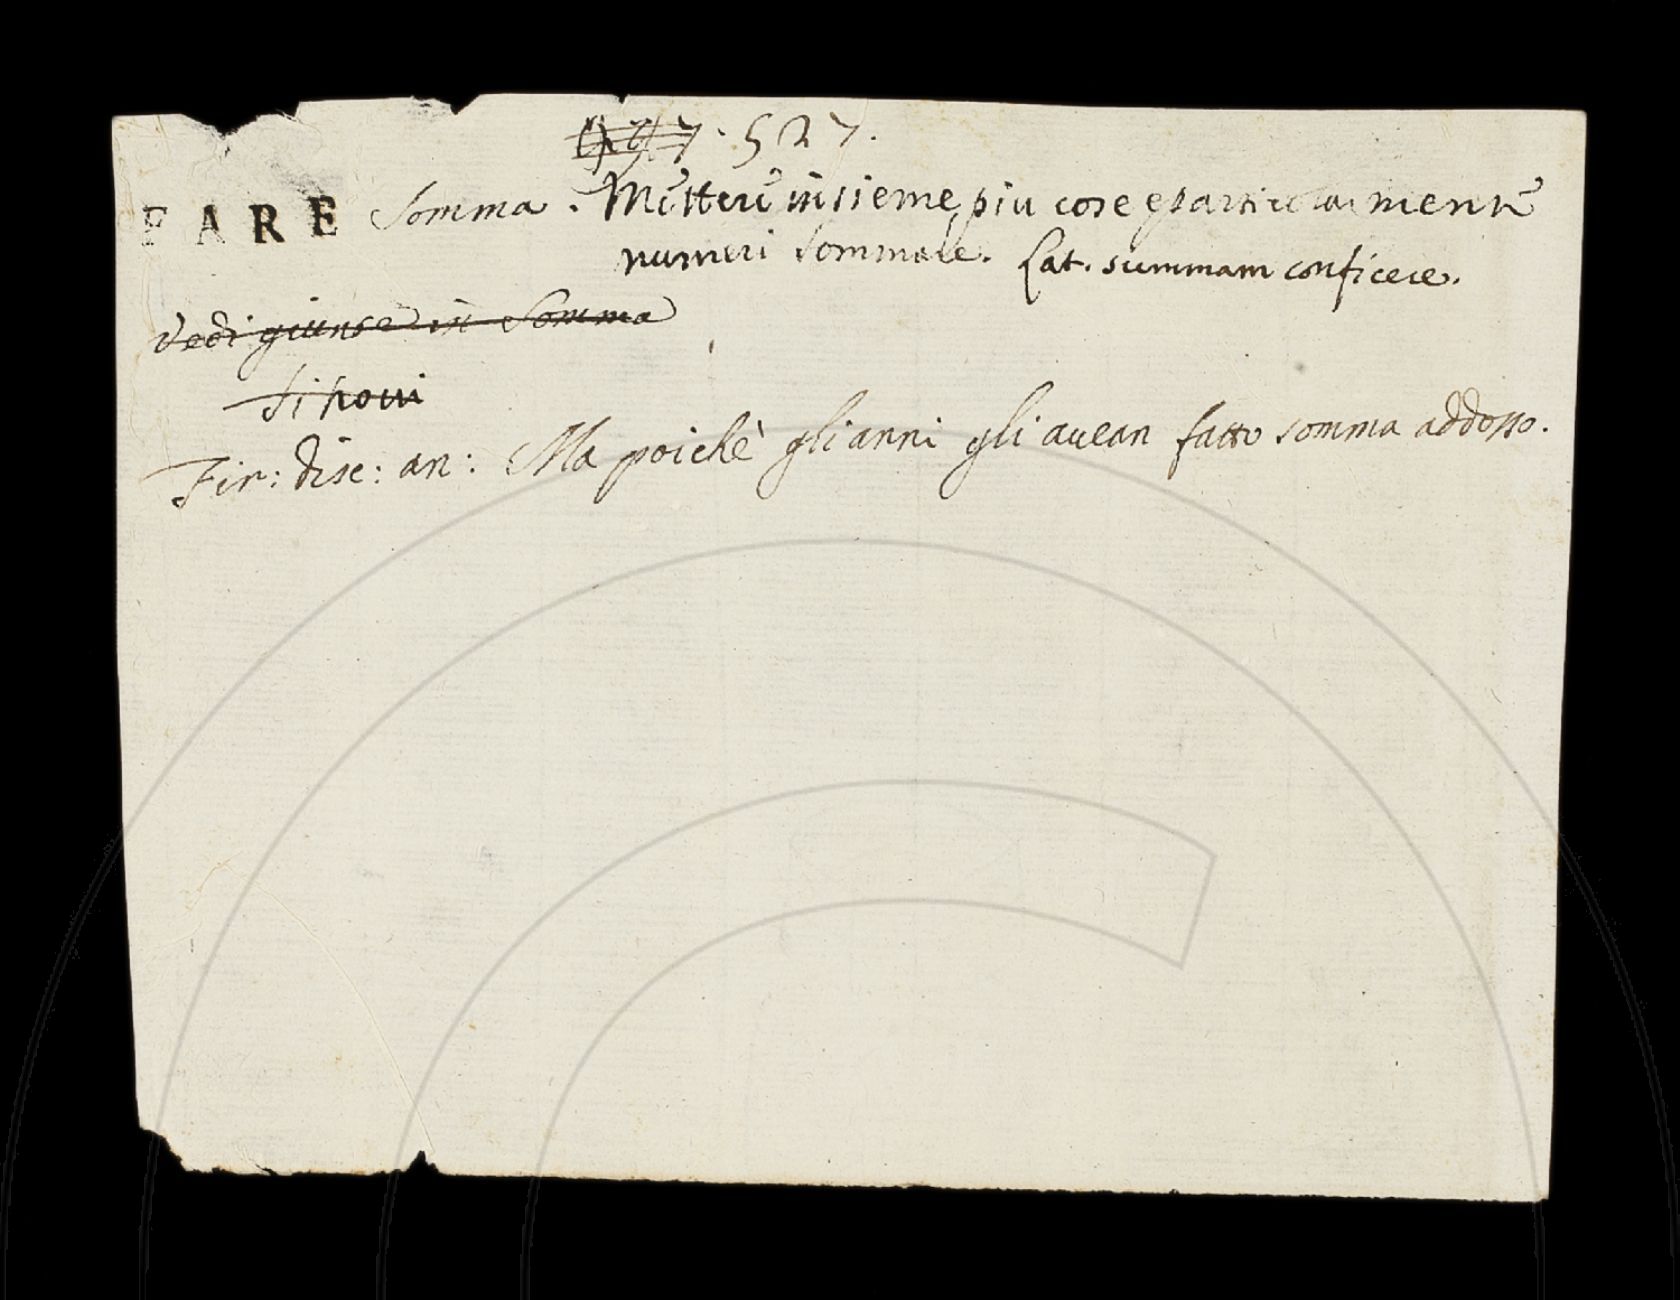 527.
FARE Somma. Mettere insieme piu cose e particularmente
numeri sommare. Lat. summam conficere.
Vedi giunse in Somma
Si trovi
Fir: disc: an: Ma poichè gli anni gli avean fatto somma addosso.